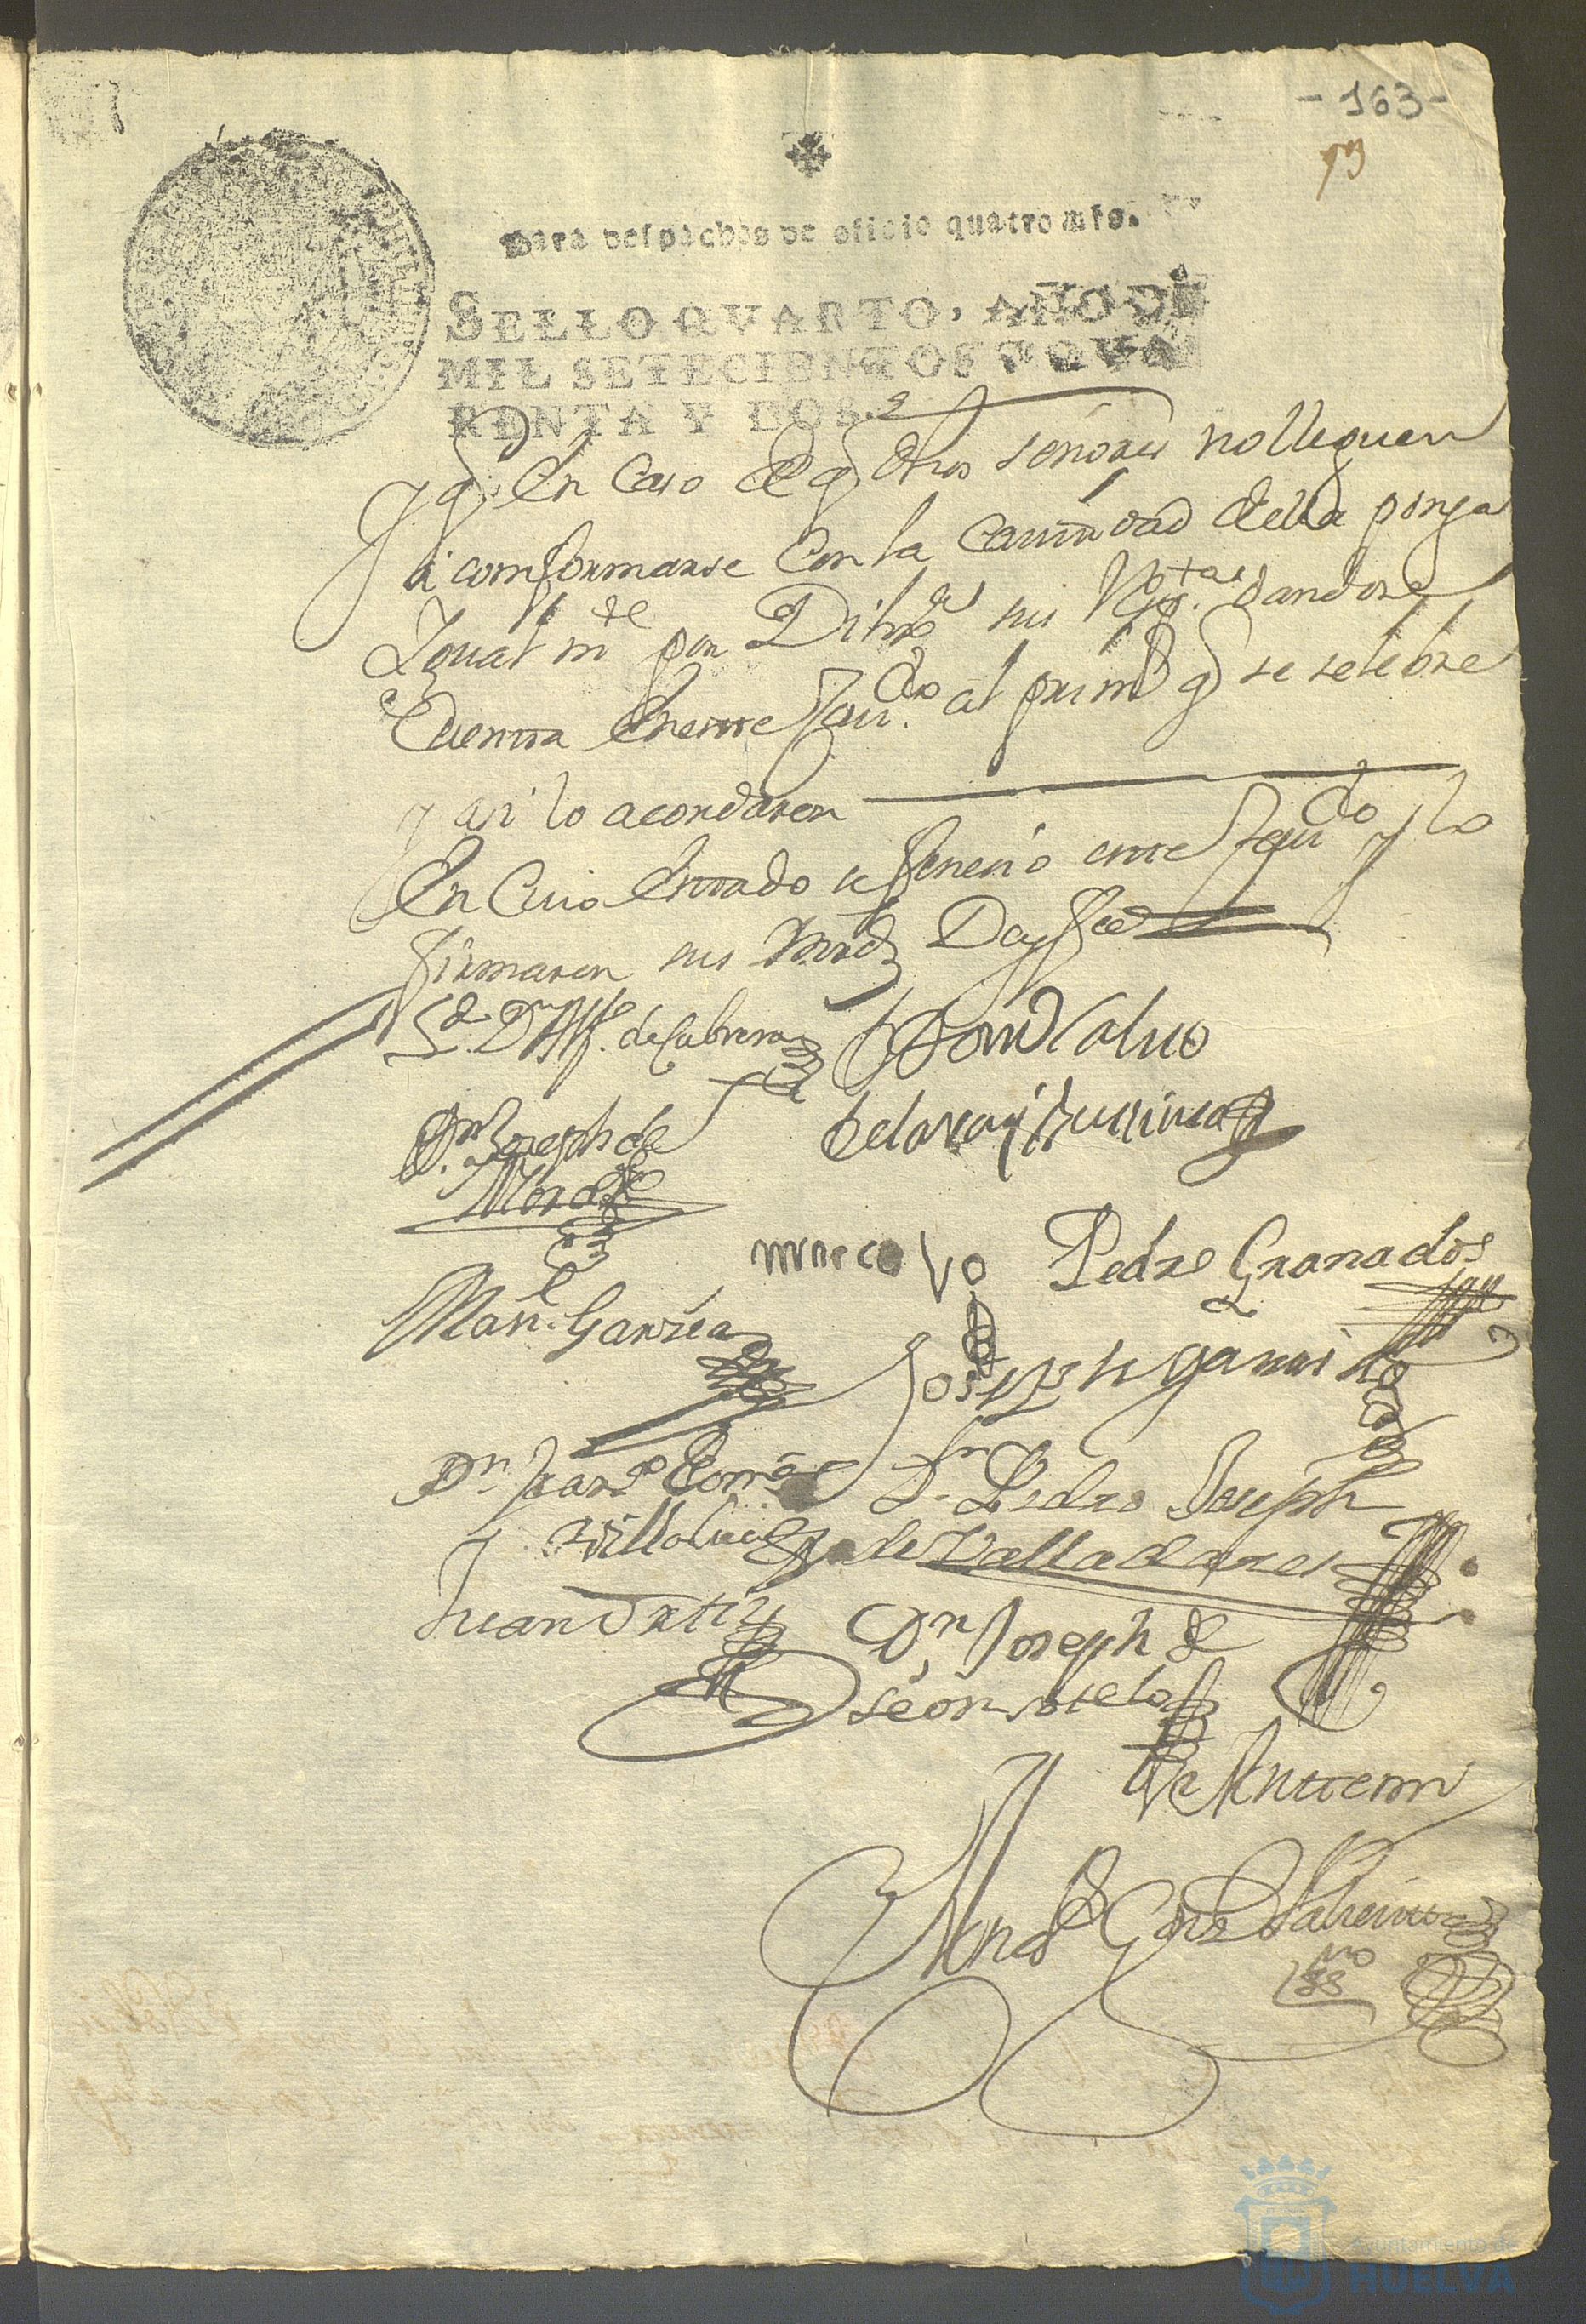 - 163 -
79
Para despachos de oficio quatro mrs.
SELLO QVARTO, AÑO DE
MIL SETECIENTOS Y QVA
RENTA Y DOS.
y q̃ en Caso de q̃ dhos señores no lleguen
a comformarse Con la Cantidad della ponga
Igualmte por Dilixa sus Notas dandose
Cuenta En este Caudo al primo q̃ se selebre
y asi lo acordaron
En Cuio Estado se feneció este Caudo y lo
firmaron sus mrds Doy fee
Ldo Dn Alfo de Cabrera
Dn Joseph de
Mar co Vo
Pedro Granados
Manl Garzia
Joseph garrido
Dn Franco Gomez
Villalua
Dn Pedro Joseph
de Valladares
Juan Ortiz
Dn Joseph de
León sotelo
Gonz
Ayuntamiento de
HUELVA